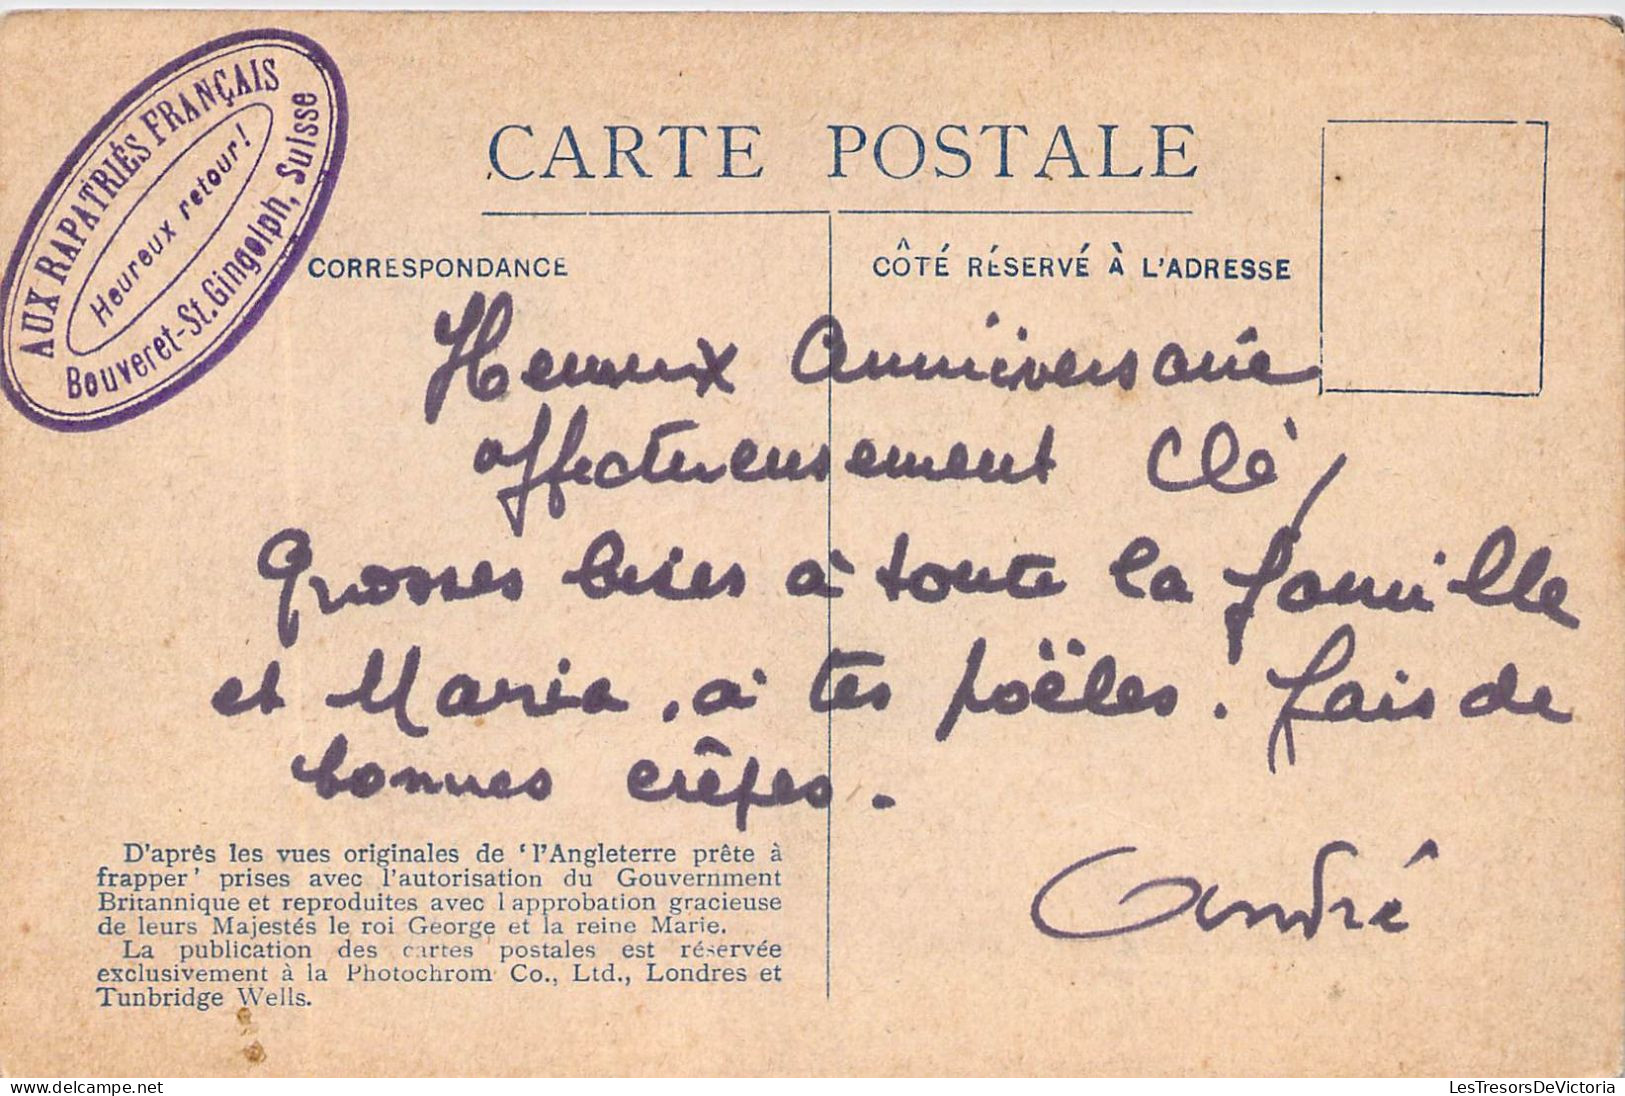 AUX RAPATRIÉS FRANÇAIS
Heureux retour!
Bouveret-St. Gingolph, Suisse
CARTE POSTALE
CORRESPONDANCE
CÔTÉ RÉSERVÉ À L'ADRESSE
Heureux Anniversaire
affectueusement Clé,
Grosses bises à toute la famille
et Maria, à tes poëles. fais de
bonnes crêpes.
André
D'après les vues originales de 'l'Angleterre prête à
frapper' prises avec l'autorisation du Gouvernment
Britannique et reproduites avec l'approbation gracieuse
de leurs Majestés le roi George et la reine Marie.
La publication des cartes postales est réservée
exclusivement à la Photochrom Co., Ltd., Londres et
Tunbridge Wells.
LesTresorsDeVictoria